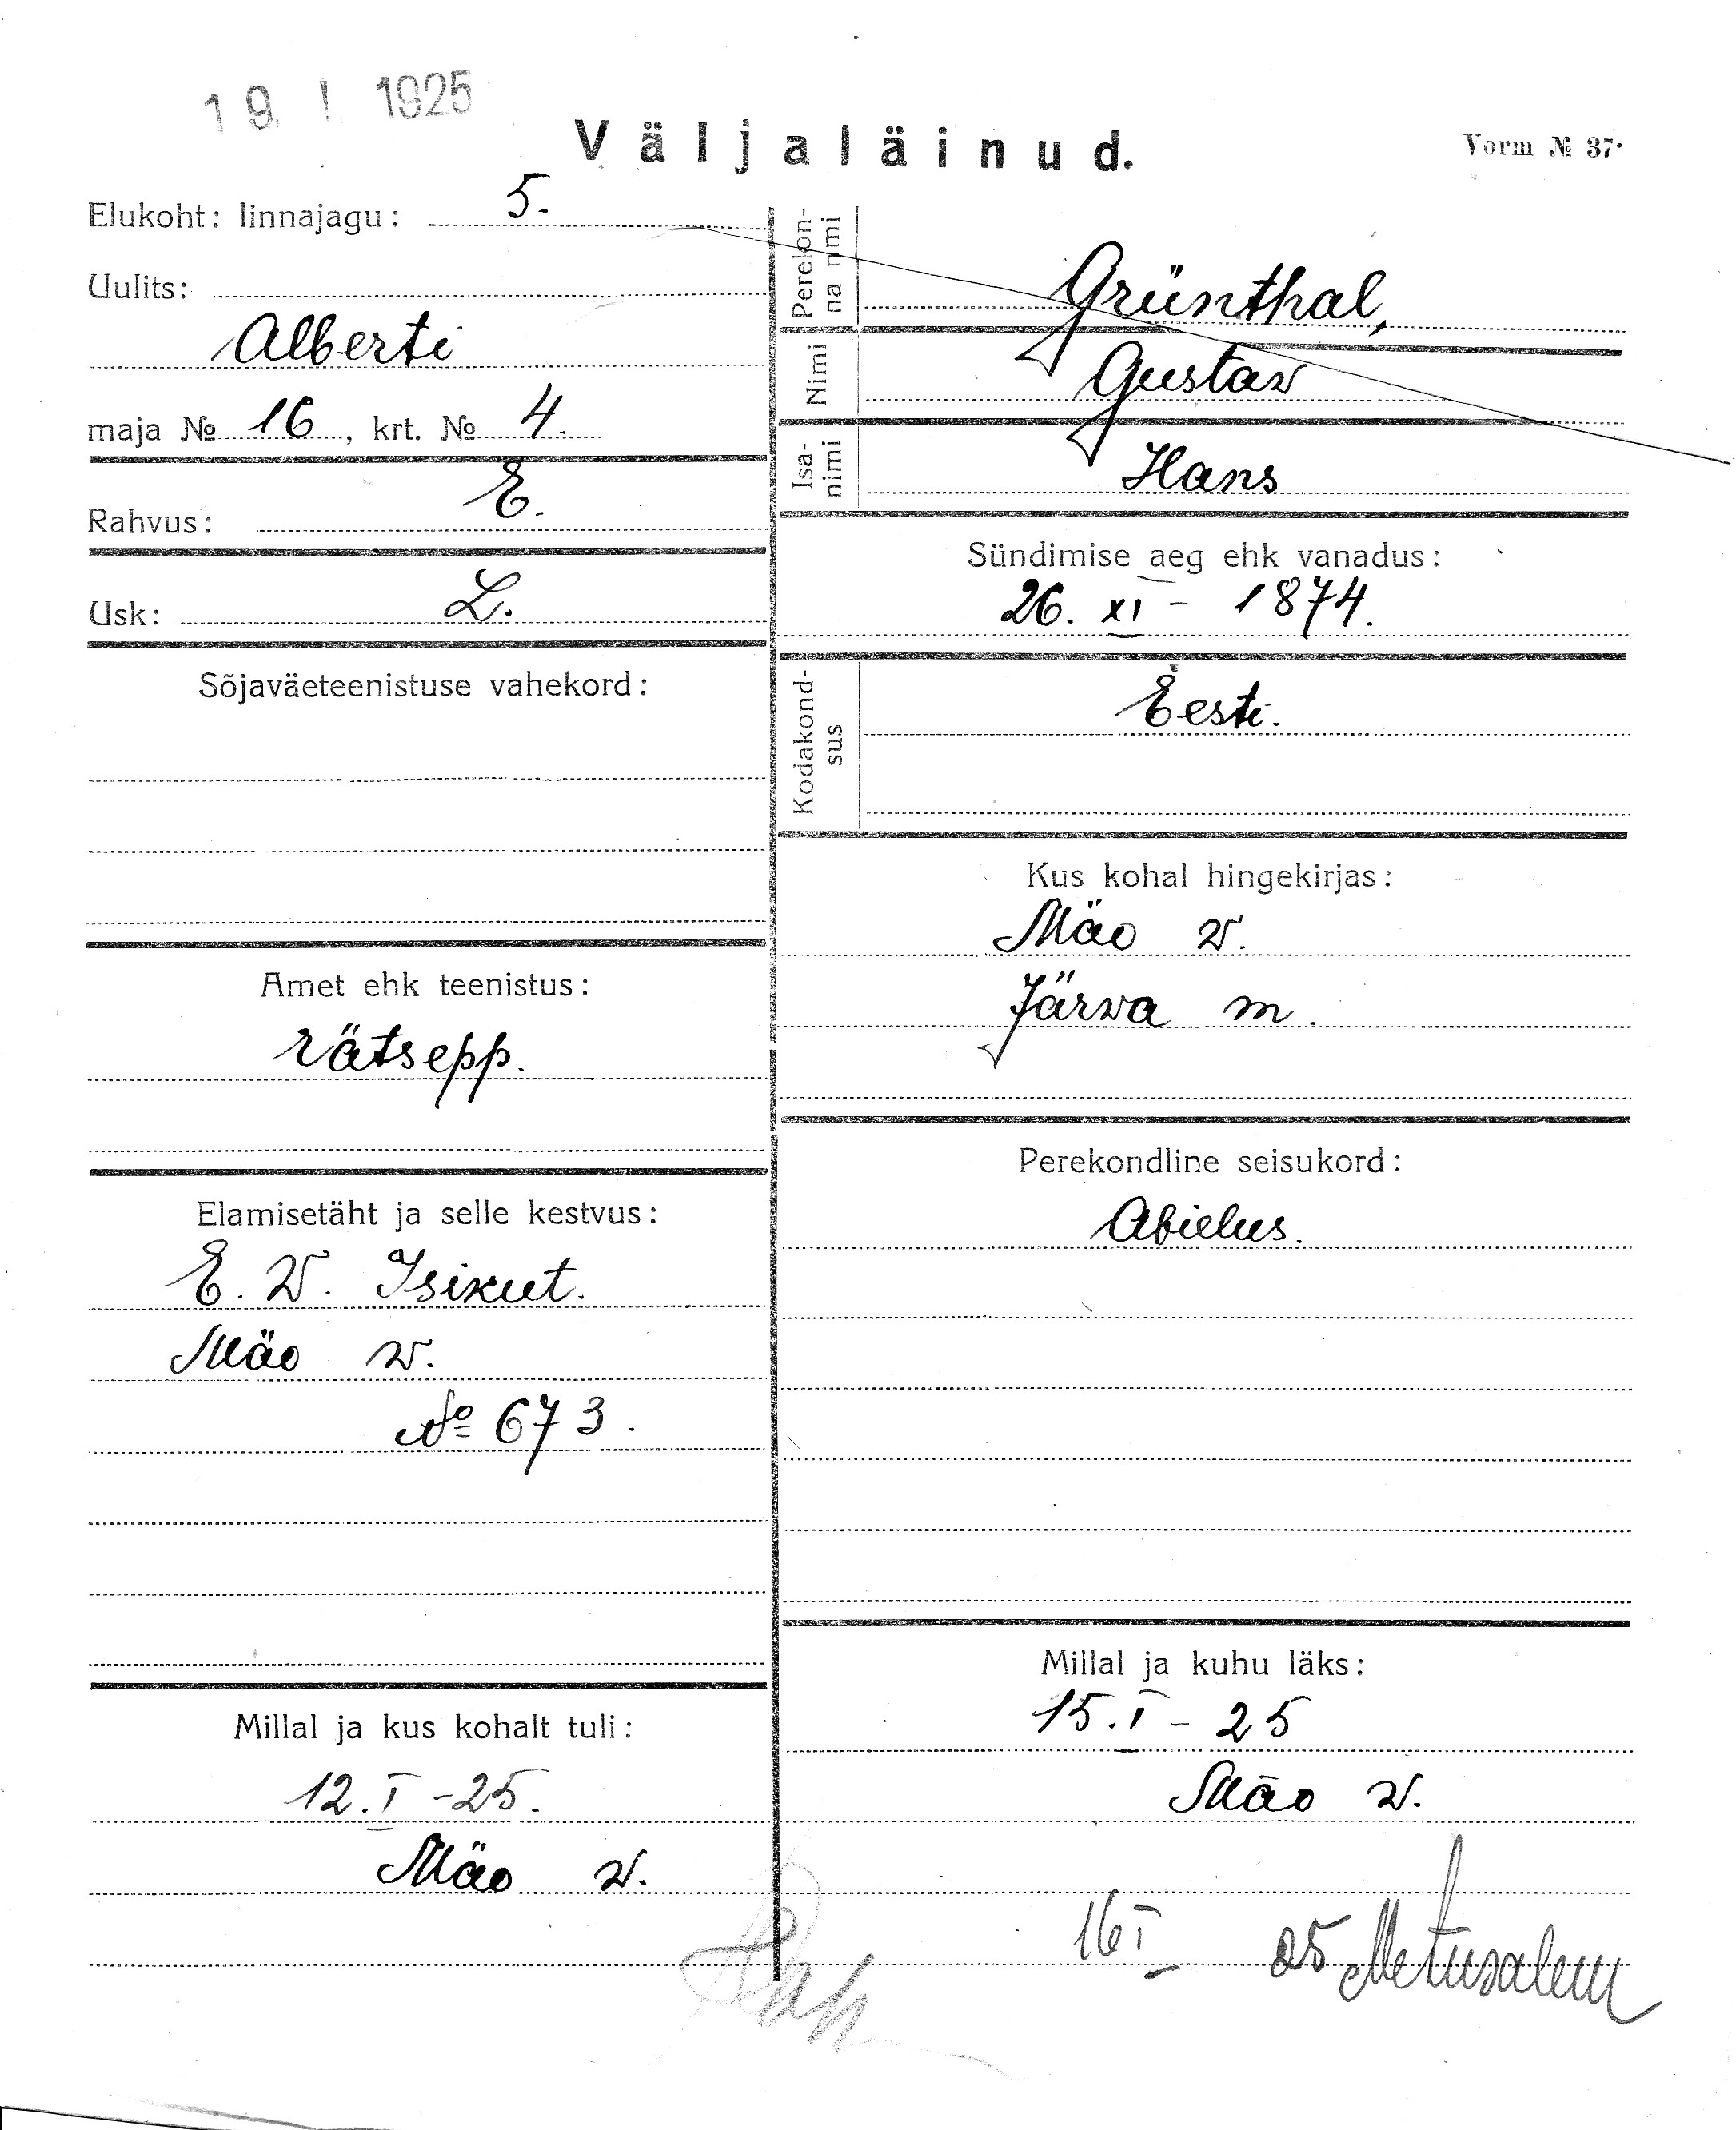 19. I 1925
Väljaläinud.
Vorm № 37.
Elukoht: linnajagu: 5.
Uulits:
Alberti
maja № 16, krt. № 4.
Rahvus: E.
Usk: L.
Sõjaväeteenistuse vahekord:
Amet ehk teenistus:
rätsepp.
Elamisetäht ja selle kestvus:
E. W. Isikut.
Mäo w.
№ 673.
Millal ja kus kohalt tuli:
12. I - 25.
Mäo w.
Perekon-
na nimi
Grünthal,
Nimi
Gustav
Isa-
nimi
Hans
Sündimise aeg ehk vanadus:
26. XI - 1874.
Kodakond-
sus
Eesti.
Kus kohal hingekirjas:
Mäo w.
Järwa m.
Perekondline seisukord:
Abielus.
Millal ja kuhu läks:
15. I - 25
Mäo w.
16 I 25 Metusalem